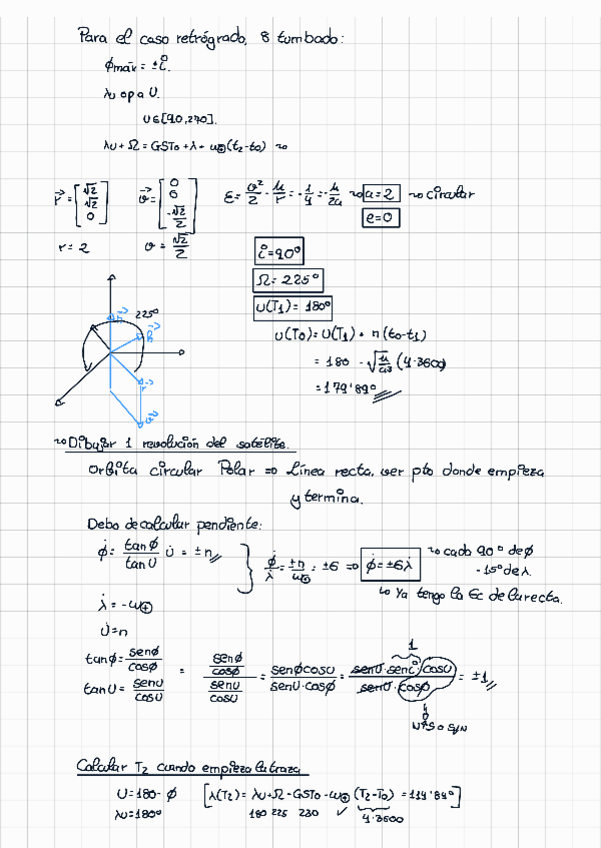 Para el caso retrógrado, 8 tumbado:
ϕmáx = ±i.
λu opa U.
U∈[90,270].
λu + Ω = GSTo + λ + ω⊕(t2-to) ~
r⃗ = [√2 √2 0] v⃗ = [0 0 -√2/2] ε = v²/2 - μ/r = -1/4 = -μ/2a ~ a=2 ~ circular
e=0
r = 2 v = √2/2 i=90º
Ω = 225º
U(T1) = 180º
225º
U(T0) = U(T1) + n(t0-t1)
= 180 - √μ/a³ (4·3600)
= 179'89º
~ Dibujar 1 revolución del satélite.
Orbita circular Polar => Línea recta, ver pto donde empieza
y termina.
Debo de calcular pendiente:
ϕ̇ = tanϕ/tanU U̇ = ±n } ϕ̇/λ̇ = ±n/ω⊕ = ±6 => ϕ̇ = ±6λ̇ ~ cada 90º de ϕ
-15º de λ.
λ̇ = -ω⊕ Ya tengo la Ec de la recta.
U̇ = n
tanϕ = senϕ/cosϕ
tanU = senU/cosU = (senϕ/cosϕ)/(senU/cosU) = senϕcosU/senU·cosϕ = senU·seni·cosU/senU·cosϕ = ±1
1
Calcular T2 cuando empieza la traza
U = 180 - ϕ [λ(T2) = λu + Ω - GSTo - ω⊕ (T2-T0) = 114'84º]
λu = 180º 180 225 230 ✓ 4·3600